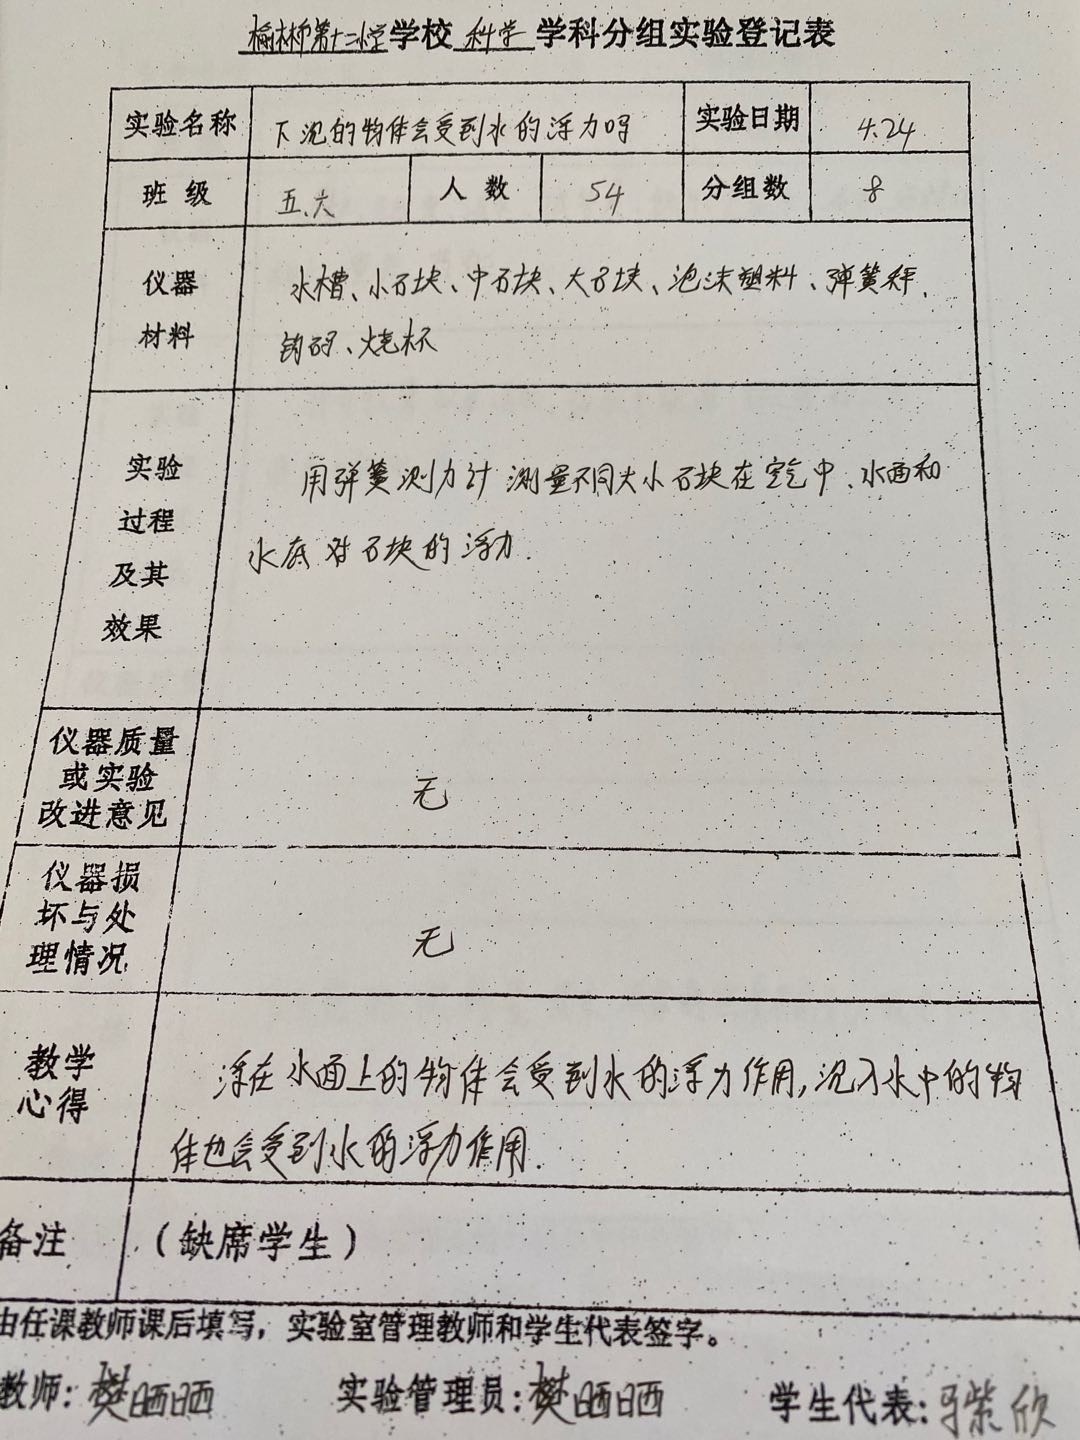 榆林市第十二小学学校 科学 学科分组实验登记表
实验名称 下沉的物体会受到水的浮力吗 实验日期 4.24
班级 五.六 人数 54 分组数 8
仪器材料 水槽、小石块、中石块、大石块、泡沫塑料、弹簧秤、
钩码、烧杯
实验过程及其效果 用弹簧测力计测量不同大小石块在空气中、水面和
水底对石块的浮力.
仪器质量或实验改进意见 无
仪器损坏与处理情况 无
教学心得 浮在水面上的物体会受到水的浮力作用,沉入水中的物
体也会受到水的浮力作用.
备注 (缺席学生)
由任课教师课后填写，实验室管理教师和学生代表签字。
教师: 樊晒晒 实验管理员: 樊晒晒 学生代表: 紫欣